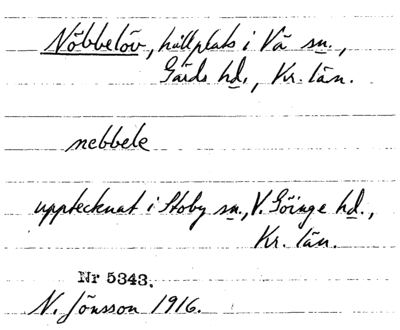 Nöbbelöv, hållplats i Vä sn.,
Gärds hd., Kr. län.
nebbele
upptecknat i Stoby sn., V. Göinge hd.,
Kr. län.
Nr 5343.
N. Jönsson 1916.